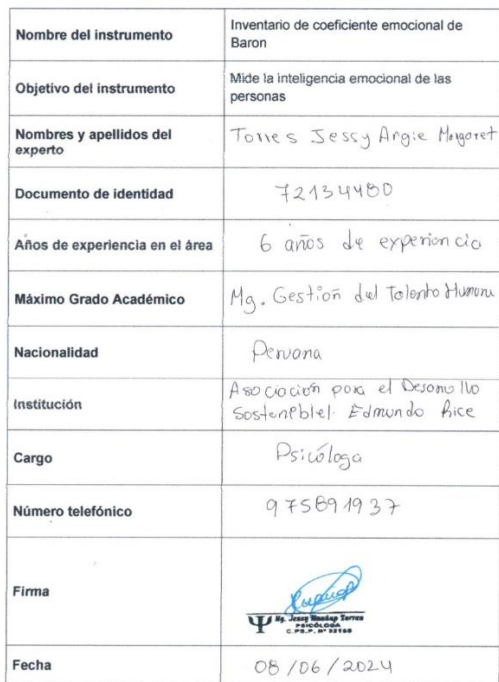 Nombre del instrumento
Inventario de coeficiente emocional de
Baron
Objetivo del instrumento
Mide la inteligencia emocional de las
personas
Nombres y apellidos del
experto
Torres Jessy Angie Margaret
Documento de identidad
72134480
Años de experiencia en el área
6 años de experiencia
Máximo Grado Académico
Mg. Gestión del Talento Humano
Nacionalidad
Peruana
Institución
Asociación para el Desarrollo
Sostenible Edmundo Rice
Cargo
Psicóloga
Número telefónico
975891937
Firma
Mg. Jessy Torres
PSICÓLOGA
C.PS.P. N° 32168
Fecha
08/06/2024